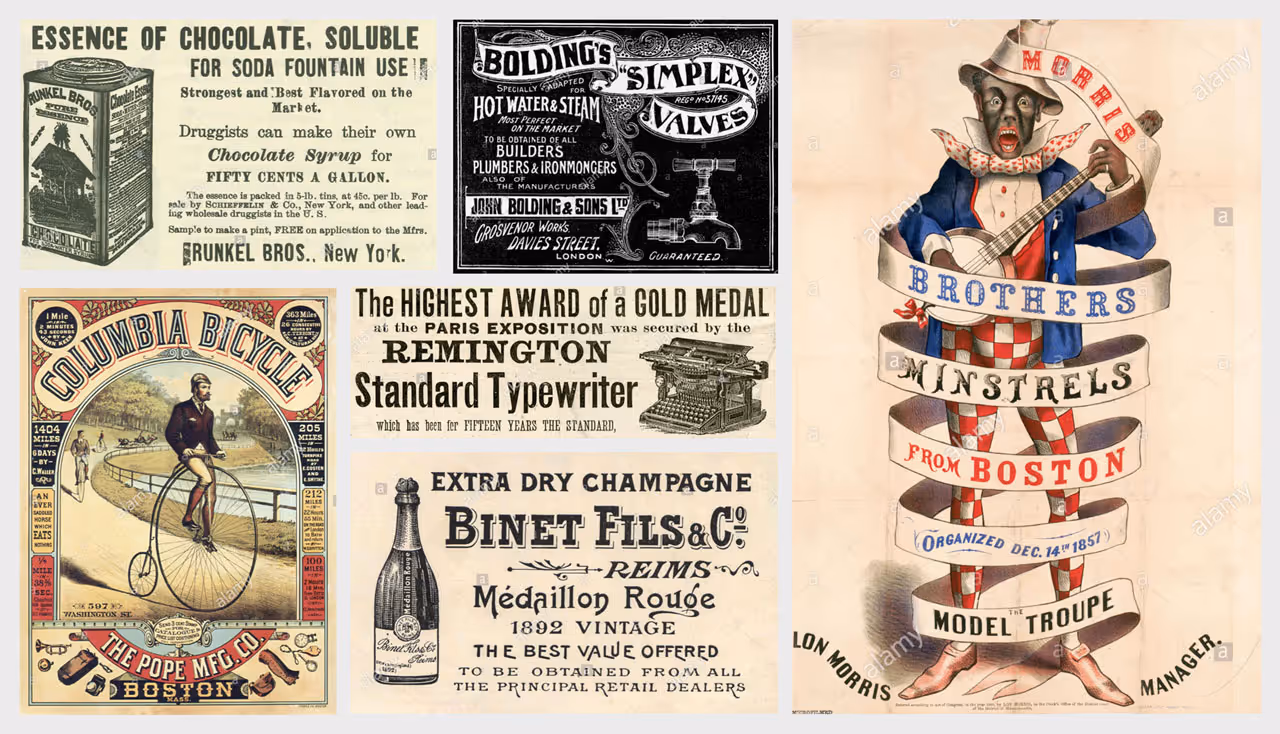 ESSENCE OF CHOCOLATE, SOLUBLE
FOR SODA FOUNTAIN USE
Strongest and Best Flavored on the
Market.
Druggists can make their own
Chocolate Syrup for
FIFTY CENTS A GALLON.
The essence is packed in 5-lb. tins, at 45c. per lb. For
sale by SCHIEFFELIN & CO., New York, and other lead-
ing wholesale druggists in the U. S.
Sample to make a pint, FREE on application to the Mfrs.
RUNKEL BROS., New York.
RUNKEL BROS
PURE
BOLDING'S
"SIMPLEX"
REGD NO 57145
VALVES
SPECIALLY ADAPTED
FOR
HOT WATER & STEAM
MOST PERFECT
ON THE MARKET
TO BE OBTAINED OF ALL
BUILDERS
PLUMBERS & IRONMONGERS
ALSO OF
THE MANUFACTURERS
JOHN BOLDING & SONS LTD
GROSVENOR WORKS,
DAVIES STREET,
LONDON, W
GUARANTEED.
1 Mile
IN
2 MINUTES
43 SECONDS
363 Miles
IN
26 CONSECUTIVE
HOURS BY
COLUMBIA BICYCLE
1404
MILES
IN
6 DAYS
BY
C. WALLER
AN
EVER
SADDLED
HORSE
WHICH
EATS
NOTHING
1/4
MILE
IN
38 3/4
SEC.
205
MILES
IN
212
MILES
IN
22 Hours
100
MILES
IN
597
WASHINGTON ST.
SEND 3 CENT STAMP
FOR
CATALOGUE
THE POPE MFG. CO.
BOSTON
MASS.
The HIGHEST AWARD of a GOLD MEDAL
at the PARIS EXPOSITION was secured by the
REMINGTON
Standard Typewriter
which has been for FIFTEEN YEARS THE STANDARD,
EXTRA DRY CHAMPAGNE
BINET FILS & CO.
REIMS
Médaillon Rouge
1892 VINTAGE
THE BEST VALUE OFFERED
TO BE OBTAINED FROM ALL
THE PRINCIPAL RETAIL DEALERS
Médaillon Rouge
Binet Fils & Co
Reims
1892
MORRIS
BROTHERS
MINSTRELS
FROM BOSTON
ORGANIZED DEC. 14TH 1857
THE
MODEL TROUPE
LON MORRIS
MANAGER.
MICROFILMED
alamy
alamy
alamy
alamy
alamy